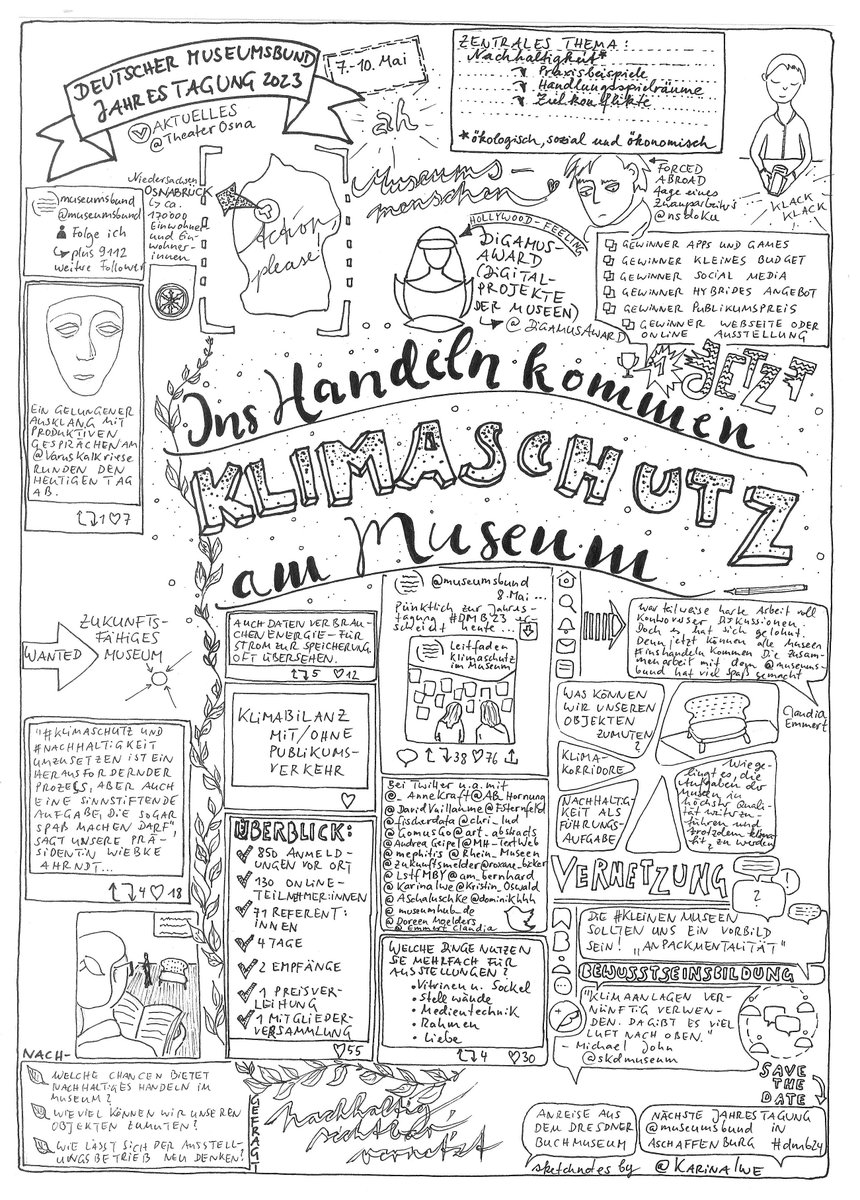 DEUTSCHER MUSEUMSBUND
JAHRESTAGUNG 2023
7.-10. Mai
AKTUELLES
@TheaterOsna
ZENTRALES THEMA:
Nachhaltigkeit*
Praxisbeispiele
Handlungsspielräume
Zielkonflikte
*ökologisch, sozial und ökonomisch
KLACK
KLACK
ah
Museums-
menschen
FORCED
ABROAD
Tage eines
Zwangsarbeiters
@nsdoku
Niedersachsen
OSNABRÜCK
ca.
170000
Einwohner
und Ein-
wohner-
innen
Action,
please!
museumsbund
@museumsbund
Folge ich
plus 9112
weitere Follower
HOLLYWOOD-FEELING
DIGAMUS-
AWARD
(DIGITAL-
PROJEKTE
DER MUSEEN)
@DIGAMUSAWARD
GEWINNER APPS UND GAMES
GEWINNER KLEINES BUDGET
GEWINNER SOCIAL MEDIA
GEWINNER HYBRIDES ANGEBOT
GEWINNER PUBLIKUMSPREIS
GEWINNER WEBSEITE ODER
ONLINE AUSSTELLUNG
JETZT
EIN GELUNGENER
AUSKLANG MIT
PRODUKTIVEN
GESPRÄCHEN AM
@Varuskalkriese
RUNDEN DEN
HEUTIGEN TAG
AB.
1 7
Ins Handeln kommen
KLIMASCHUTZ
am Museum
WANTED
ZUKUNFTS-
FÄHIGES
MUSEUM
AUCH DATEN VERBRAU-
CHEN ENERGIE - FÜR
STROM ZUR SPEICHERUNG
OFT ÜBERSEHEN.
5 12
KLIMABILANZ
MIT/OHNE
PUBLIKUMS-
VERKEHR
@museumsbund
8. Mai ...
Pünktlich zur Jahres-
tagung #DMB23 er-
scheint heute ...
Leitfaden
Klimaschutz
im Museum
38 76
war teilweise harte Arbeit voll
kontroverser Diskussionen.
Doch es hat sich gelohnt.
Denn jetzt können alle Museen
#inshandeln kommen. Die Zusam-
menarbeit mit dem @museums-
bund hat viel Spaß gemacht
Claudia
Emmert
WAS KÖNNEN
WIR UNSEREN
OBJEKTEN
ZUMUTEN
?
KLIMA-
KORRIDORE
NACHHALTIG-
KEIT ALS
FÜHRUNGS-
AUFGABE
Wie ge-
lingt es, die
Aufgaben der
Museen in
höchster Quali-
tät weiterzu-
führen und
trotzdem klima-
fit zu werden
"#KLIMASCHUTZ UND
#NACHHALTIGKEIT
UMZUSETZEN IST EIN
HERAUSFORDERNDER
PROZESS, ABER AUCH
EINE SINNSTIFTENDE
AUFGABE, DIE SOGAR
SPAß MACHEN DARF",
SAGT UNSERE PRÄ-
SIDENTIN WIEBKE
AHRNDT...
4 18
ÜBERBLICK:
850 ANMELD-
UNGEN VOR ORT
130 ONLINE-
TEILNEHMER:INNEN
71 REFERENT:
INNEN
4 TAGE
2 EMPFÄNGE
1 PREISVER-
LEIHUNG
1 MITGLIEDER-
VERSAMMLUNG
55
Bei Twitter u.a. mit
@_AnneKraft @AB_Hornung
@DavidVuillaume @FSternfeld
@fischerdata @chri_lud
@LiomusGo @art_abstracts
@Andrea Geipel @MH_TextWeb
@mephitis @Rhein_Museen
@Zukunftsmelder
@LstfMBY @am_bernhard
@KarinaIwe @Kristin_Oswald
ASchaluschke @dominikhhh
@museumhub_de
@Doreen Moelders
@Emmert_Claudia
WELCHE DINGE NUTZEN
SIE MEHRFACH FÜR
AUSSTELLUNGEN?
• Vitrinen u. Sockel
• Stellwände
• Medientechnik
• Rahmen
• Liebe
4 30
VERNETZUNG
?
!
DIE #KLEINEN MUSEEN
SOLLTEN UNS EIN VORBILD
SEIN! „ANPACKMENTALITÄT"
BEWUSSTSEINSBILDUNG
"KLIMAANLAGEN VER-
NÜNFTIG VERWEN-
DEN. DA GIBT ES VIEL
LUFT NACH OBEN."
- Michael John
@skdmuseum
SAVE
THE
DATE
NACH-
GEFRAGT
WELCHE CHANCEN BIETET
NACHHALTIGES HANDELN IM
MUSEUM?
WIEVIEL KÖNNEN WIR UNSEREN
OBJEKTEN ZUMUTEN?
WIE LÄSST SICH DER AUSSTELL-
UNGSBETRIEB NEU DENKEN?
nachhaltig,
sichtbar,
vernetzt
ANREISE AUS
DEM DRESDNER
BUCHMUSEUM
NÄCHSTE JAHRESTAGUNG
@museumsbund IN
ASCHAFFENBURG #dmb24
sketchnotes by @KARINAIWE